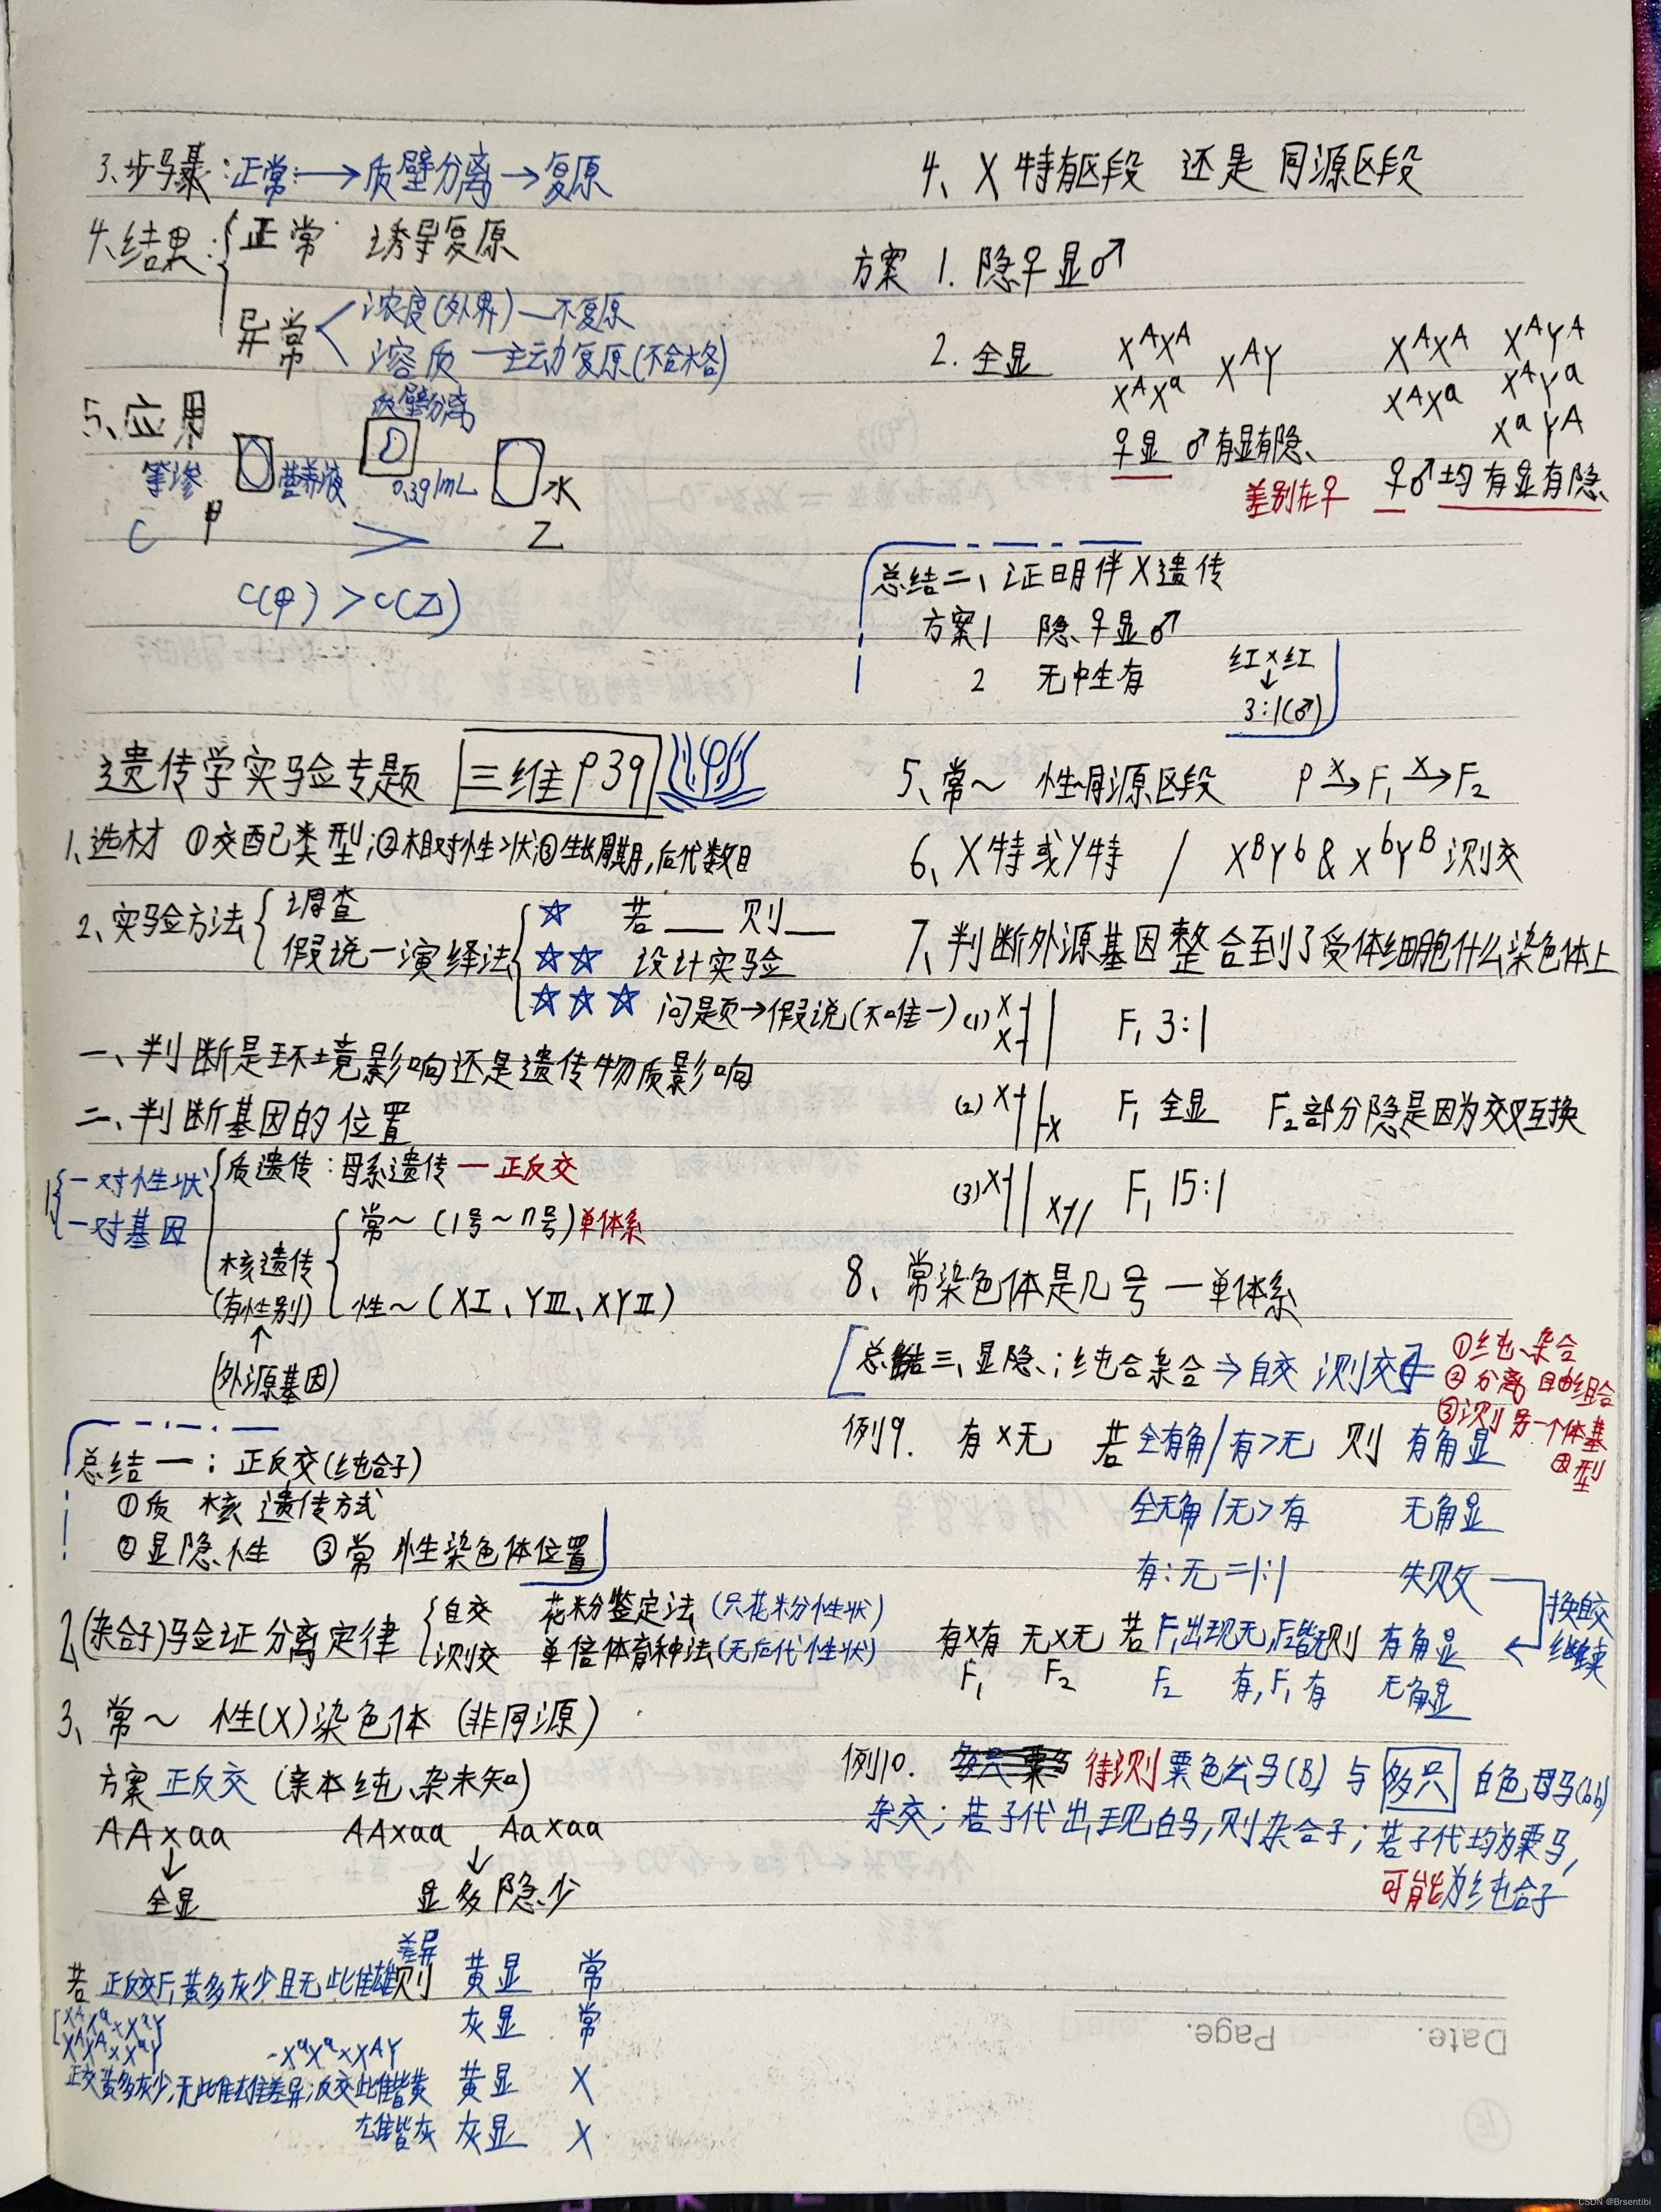 3、步骤：正常→质壁分离→复原
4、结果：正常 诱导复原
异常 浓度(外界)—不复原
溶质—主动复原(不合格)
5、应用
质壁分离
等渗 营养液 0.3g/mL 水
甲 乙
C >
C(甲)>C(乙)
遗传学实验专题 三维P39
1、选材 ①交配类型;②相对性状;③生长周期,后代数目
2、实验方法 调查
假说—演绎法
☆ 若___则___
☆☆ 设计实验
☆☆☆ 问题→假说(不唯一)
一、判断是环境影响还是遗传物质影响
二、判断基因的位置
1 一对性状
一对基因
质遗传：母系遗传—正反交
核遗传
(有性别)
常~(1号~n号)单体系
性~(XⅠ、YⅢ、XYⅡ)
↑
(外源基因)
总结一：正反交(纯合子)
①质 核 遗传方式
②显隐性 ③常 性染色体位置
2、(杂合子)验证分离定律
自交 花粉鉴定法(只花粉性状)
测交 单倍体育种法(无后代性状)
3、常~ 性(X)染色体(非同源)
方案 正反交(亲本纯、杂未知)
AA×aa AA×aa Aa×aa
↓ ↓
全显 显多隐少
差异
若 正反交F₁黄多灰少且无雌雄则 黄显 常
灰显 常
XᴬXᵃ×XᵃY
XᴬXᴬ×XᵃY
XᵃXᵃ×XᴬY
正交黄多灰少,无雌雄差异;反交雌皆黄 黄显 X
雄皆灰 灰显 X
4、X特有区段 还是 同源区段
方案 1. 隐♀显♂
2. 全显
XᴬXᴬ XᴬY
XᴬXᵃ
XᴬXᴬ XᴬYᴬ
XᴬXᵃ XᴬYᵃ
XᵃYᴬ
♀显 ♂有显有隐、
差别在♀ ♀♂均有显有隐、
总结二、证明伴X遗传
方案1 隐♀显♂
2 无中生有
红×红
↓
3:1(♂)
5、常~ 性~同源区段 P×→F₁×→F₂
6、X特或Y特 / XᴮYᵇ & XᵇYᴮ测交
7、判断外源基因整合到了受体细胞什么染色体上
(1) X X F₁ 3:1
(2) X X F₁ 全显 F₂部分隐是因为交叉互换
(3) X X F₁ 15:1
8、常染色体是几号—单体系
总结三、显隐；纯合杂合→自交 测交
①纯、杂合
②分离 自由组合
③测另一个体基因型
例9. 有×无 若全有角/有>无 则 有角显
全无角/无>有 无角显
有:无=1:1 失败
换自交继续
有×有 无×无 若F₁出现无,F₂皆无则 有角显
F₁ F₂ F₂ 有,F₁有 无角显
例10. 待测栗色公马(B_)与多只白色母马(bb)
杂交；若子代出现白马,则杂合子；若子代均为栗马,
可能为纯合子
Date. Page.
CSDN @Brsentibi